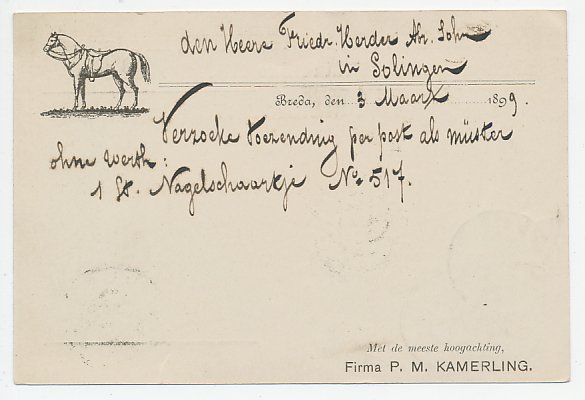 den Heere Friedr. Herder Ab. Sohn
in Solingen
Breda, den 3 Maart 1899.
Verzoeke toezending per post als müster
ohne werth:
1 St. Nagelschaartje No. 517.
Met de meeste hoogachting,
Firma P. M. KAMERLING.